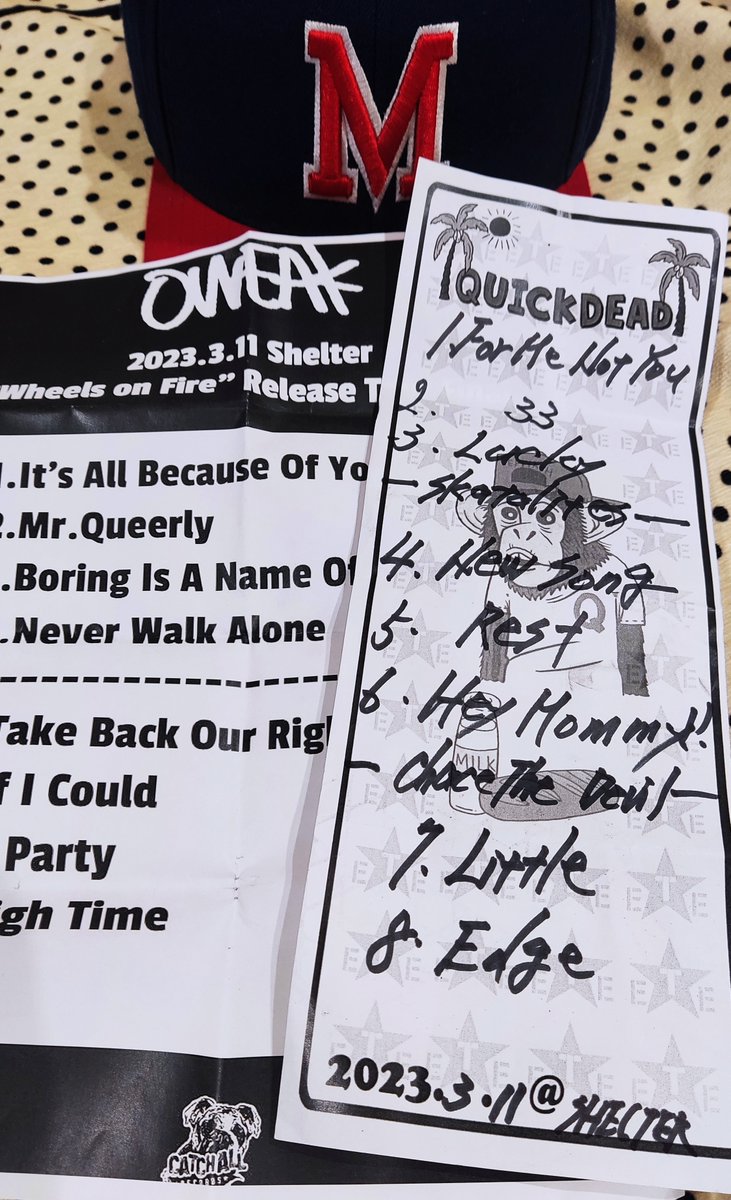 M
OWEAK
2023.3.11 Shelter
Wheels on Fire" Release T
1.It's All Because Of Yo
2.Mr.Queerly
.Boring Is A Name Of
.Never Walk Alone
Take Back Our Righ
f I Could
Party
igh Time
CATCH ALL
RECORDS
QUICKDEAD
1 For Me Not You
2. 33
3. Lucky
— skatalites —
4. New Song
5. Rest
6. Hey Mommy!
— Chace The Devil —
7. Little
8. Edge
Q
MILK
2023.3.11@SHELTER